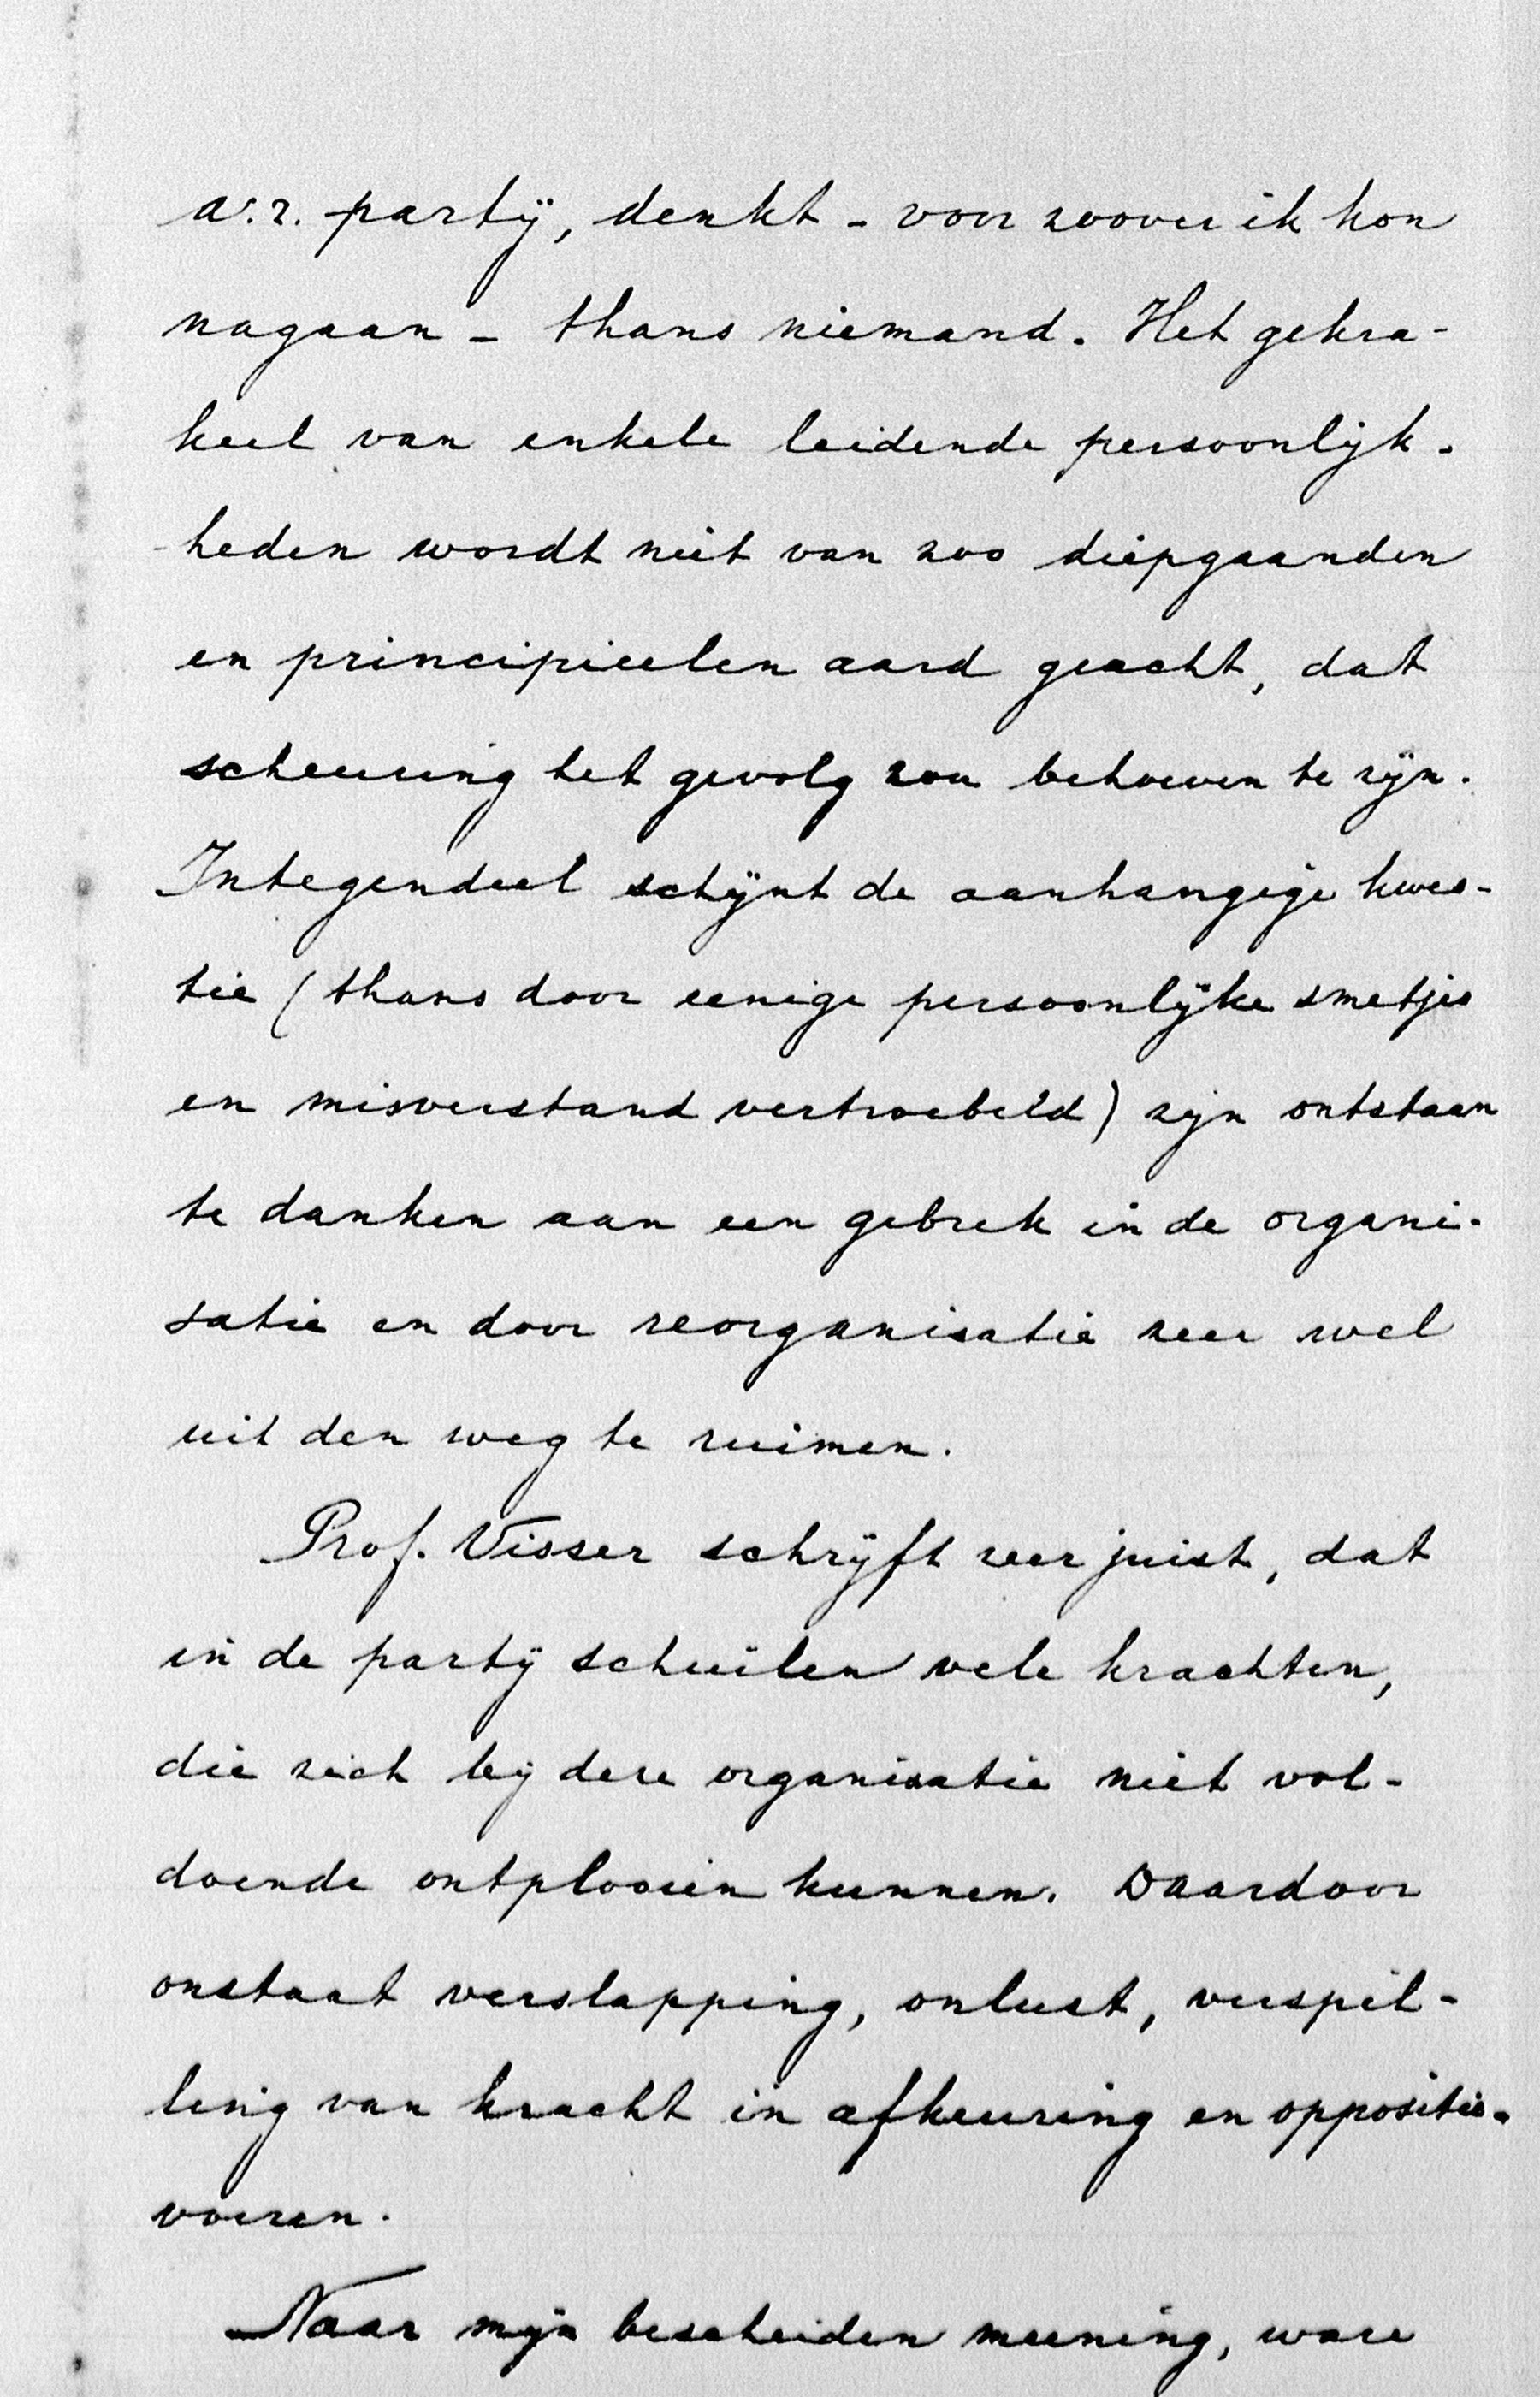 a.r. partij, denkt - voor zoover ik kon
nagaan - thans niemand. Het gekra-
keel van enkele leidende persoonlijk-
heden wordt niet van zoo diepgaanden
en principieelen aard geacht, dat
scheuring het gevolg zou behoeven te zijn.
Integendeel schijnt de aanhangige kwes-
tie (thans door eenige persoonlijke smetjes
en misverstand vertroebeld) zijn ontstaan
te danken aan een gebrek in de organi-
satie en door reorganisatie zeer wel
uit den weg te ruimen.
Prof. Visser schrijft zeer juist, dat
in de partij schuilen vele krachten,
die zich bij deze organisatie niet vol-
doende ontplooien kunnen. Daardoor
onstaat verslapping, onlust, verspil-
ling van kracht in afkeuring en oppositie-
voeren.
Naar mijn bescheiden meening, ware